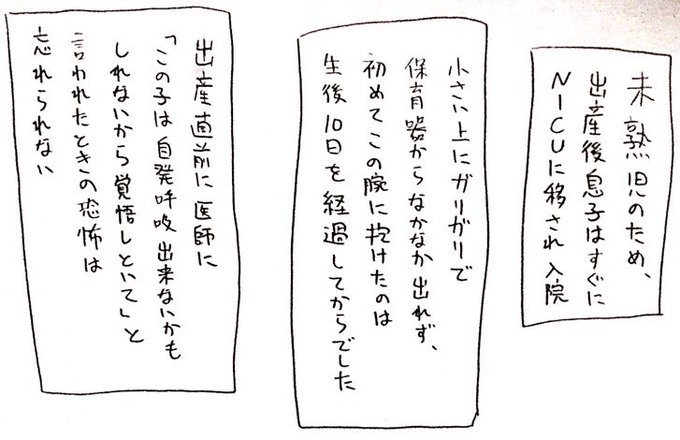 未熟児のため、
出産後息子はすぐに
NICUに移され入院
小さい上にガリガリで
保育器からなかなか出れず、
初めてこの腕に抱けたのは
生後10日を経過してからでした
出産直前に医師に
「この子は自発呼吸出来ないかも
しれないから覚悟しといて」と
言われたときの恐怖は
忘れられない